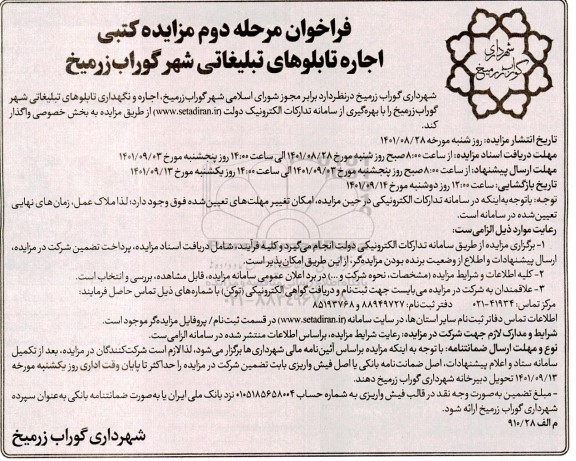 شهرداری
گوراب زرمیخ
فراخوان مرحله دوم مزایده کتبی
اجاره تابلوهای تبلیغاتی شهر گوراب زرمیخ
شهرداری گوراب زرمیخ درنظردارد برابر مجوز شورای اسلامی شهر گوراب‌زرمیخ، اجاره و نگهداری تابلوهای تبلیغاتی شهر
گوراب‌زرمیخ را با بهره‌گیری از سامانه تدارکات الکترونیک دولت (www.setadiran.ir) از طریق مزایده به بخش خصوصی واگذار
کند.
تاریخ انتشار مزایده: روز شنبه مورخه ۱۴۰۱/۰۸/۲۸
مهلت دریافت اسناد مزایده: از ساعت ۸:۰۰ صبح روز شنبه مورخ ۱۴۰۱/۰۸/۲۸ الی ساعت ۱۴:۰۰ روز پنجشنبه مورخ ۱۴۰۱/۰۹/۰۳
مهلت ارسال پیشنهاد: از ساعت ۸:۰۰ صبح روز پنجشنبه مورخ ۱۴۰۱/۰۹/۰۳ الی ساعت ۱۴:۰۰ روز یکشنبه مورخ ۱۴۰۱/۰۹/۱۳
تاریخ بازگشایی: ساعت ۱۲:۰۰ روز دوشنبه مورخ ۱۴۰۱/۰۹/۱۴
توجه: باتوجه‌به‌اینکه در سامانه تدارکات الکترونیکی در حین مزایده، امکان تغییر مهلت‌های تعیین‌شده فوق وجود دارد؛ لذا ملاک عمل، زمان‌های نهایی
تعیین‌شده در سامانه است.
رعایت موارد ذیل الزامی‌ست:
۱- برگزاری مزایده از طریق سامانه تدارکات الکترونیکی دولت انجام می‌گیرد و کلیه فرآیند، شامل دریافت اسناد مزایده، پرداخت تضمین شرکت در مزایده،
ارسال پیشنهادات و اطلاع از وضعیت برنده بودن مزایده‌گر، از این طریق امکان‌پذیر است.
۲- کلیه اطلاعات و شرایط مزایده (مشخصات، نحوه شرکت و ...) در برد اعلان عمومی سامانه مزایده، قابل مشاهده، بررسی و انتخاب است.
۳- علاقمندان به شرکت در مزایده می‌بایست جهت ثبت‌نام و دریافت گواهی الکترونیکی (توکن) با شماره‌های ذیل تماس حاصل فرمایند:
مرکز تماس: ۴۱۹۳۴-۰۲۱ دفتر ثبت‌نام: ۸۸۹۴۹۷۲۷ و ۸۵۱۹۳۷۶۸
اطلاعات تماس دفاتر ثبت‌نام سایر استان‌ها، در سایت سامانه (www.setadiran.ir) در قسمت ثبت‌نام / پروفایل مزایده‌گر موجود است.
شرایط و مدارک لازم جهت شرکت در مزایده: رعایت شرایط مزایده، براساس اطلاعات منتشر شده در سامانه الزامی‌ست.
نوع و مهلت ارسال ضمانتنامه: با توجه به اینکه مزایده براساس آئین‌نامه مالی شهرداری‌ها برگزار می‌شود، لذا لازم است شرکت‌کنندگان در مزایده، بعد از تکمیل
سامانه ستاد و اعلام پیشنهادات، اصل ضمانت‌نامه بانکی یا اصل فیش واریزی بابت تضمین شرکت در مزایده را حداکثر تا پایان وقت اداری روز یکشنبه مورخه
۱۴۰۱/۰۹/۱۳ تحویل دبیرخانه شهرداری گوراب زرمیخ دهند.
- مبلغ تضمین به‌صورت وجه نقد در قالب فیش واریزی به شماره حساب ۰۱۰۵۱۸۵۶۵۸۰۰۴ نزد بانک ملی ایران یا به‌صورت ضمانتنامه بانکی به‌عنوان سپرده
شهرداری گوراب زرمیخ ارائه شود.
م الف ۹۱۰/۲۸
شهرداری گوراب زرمیخ